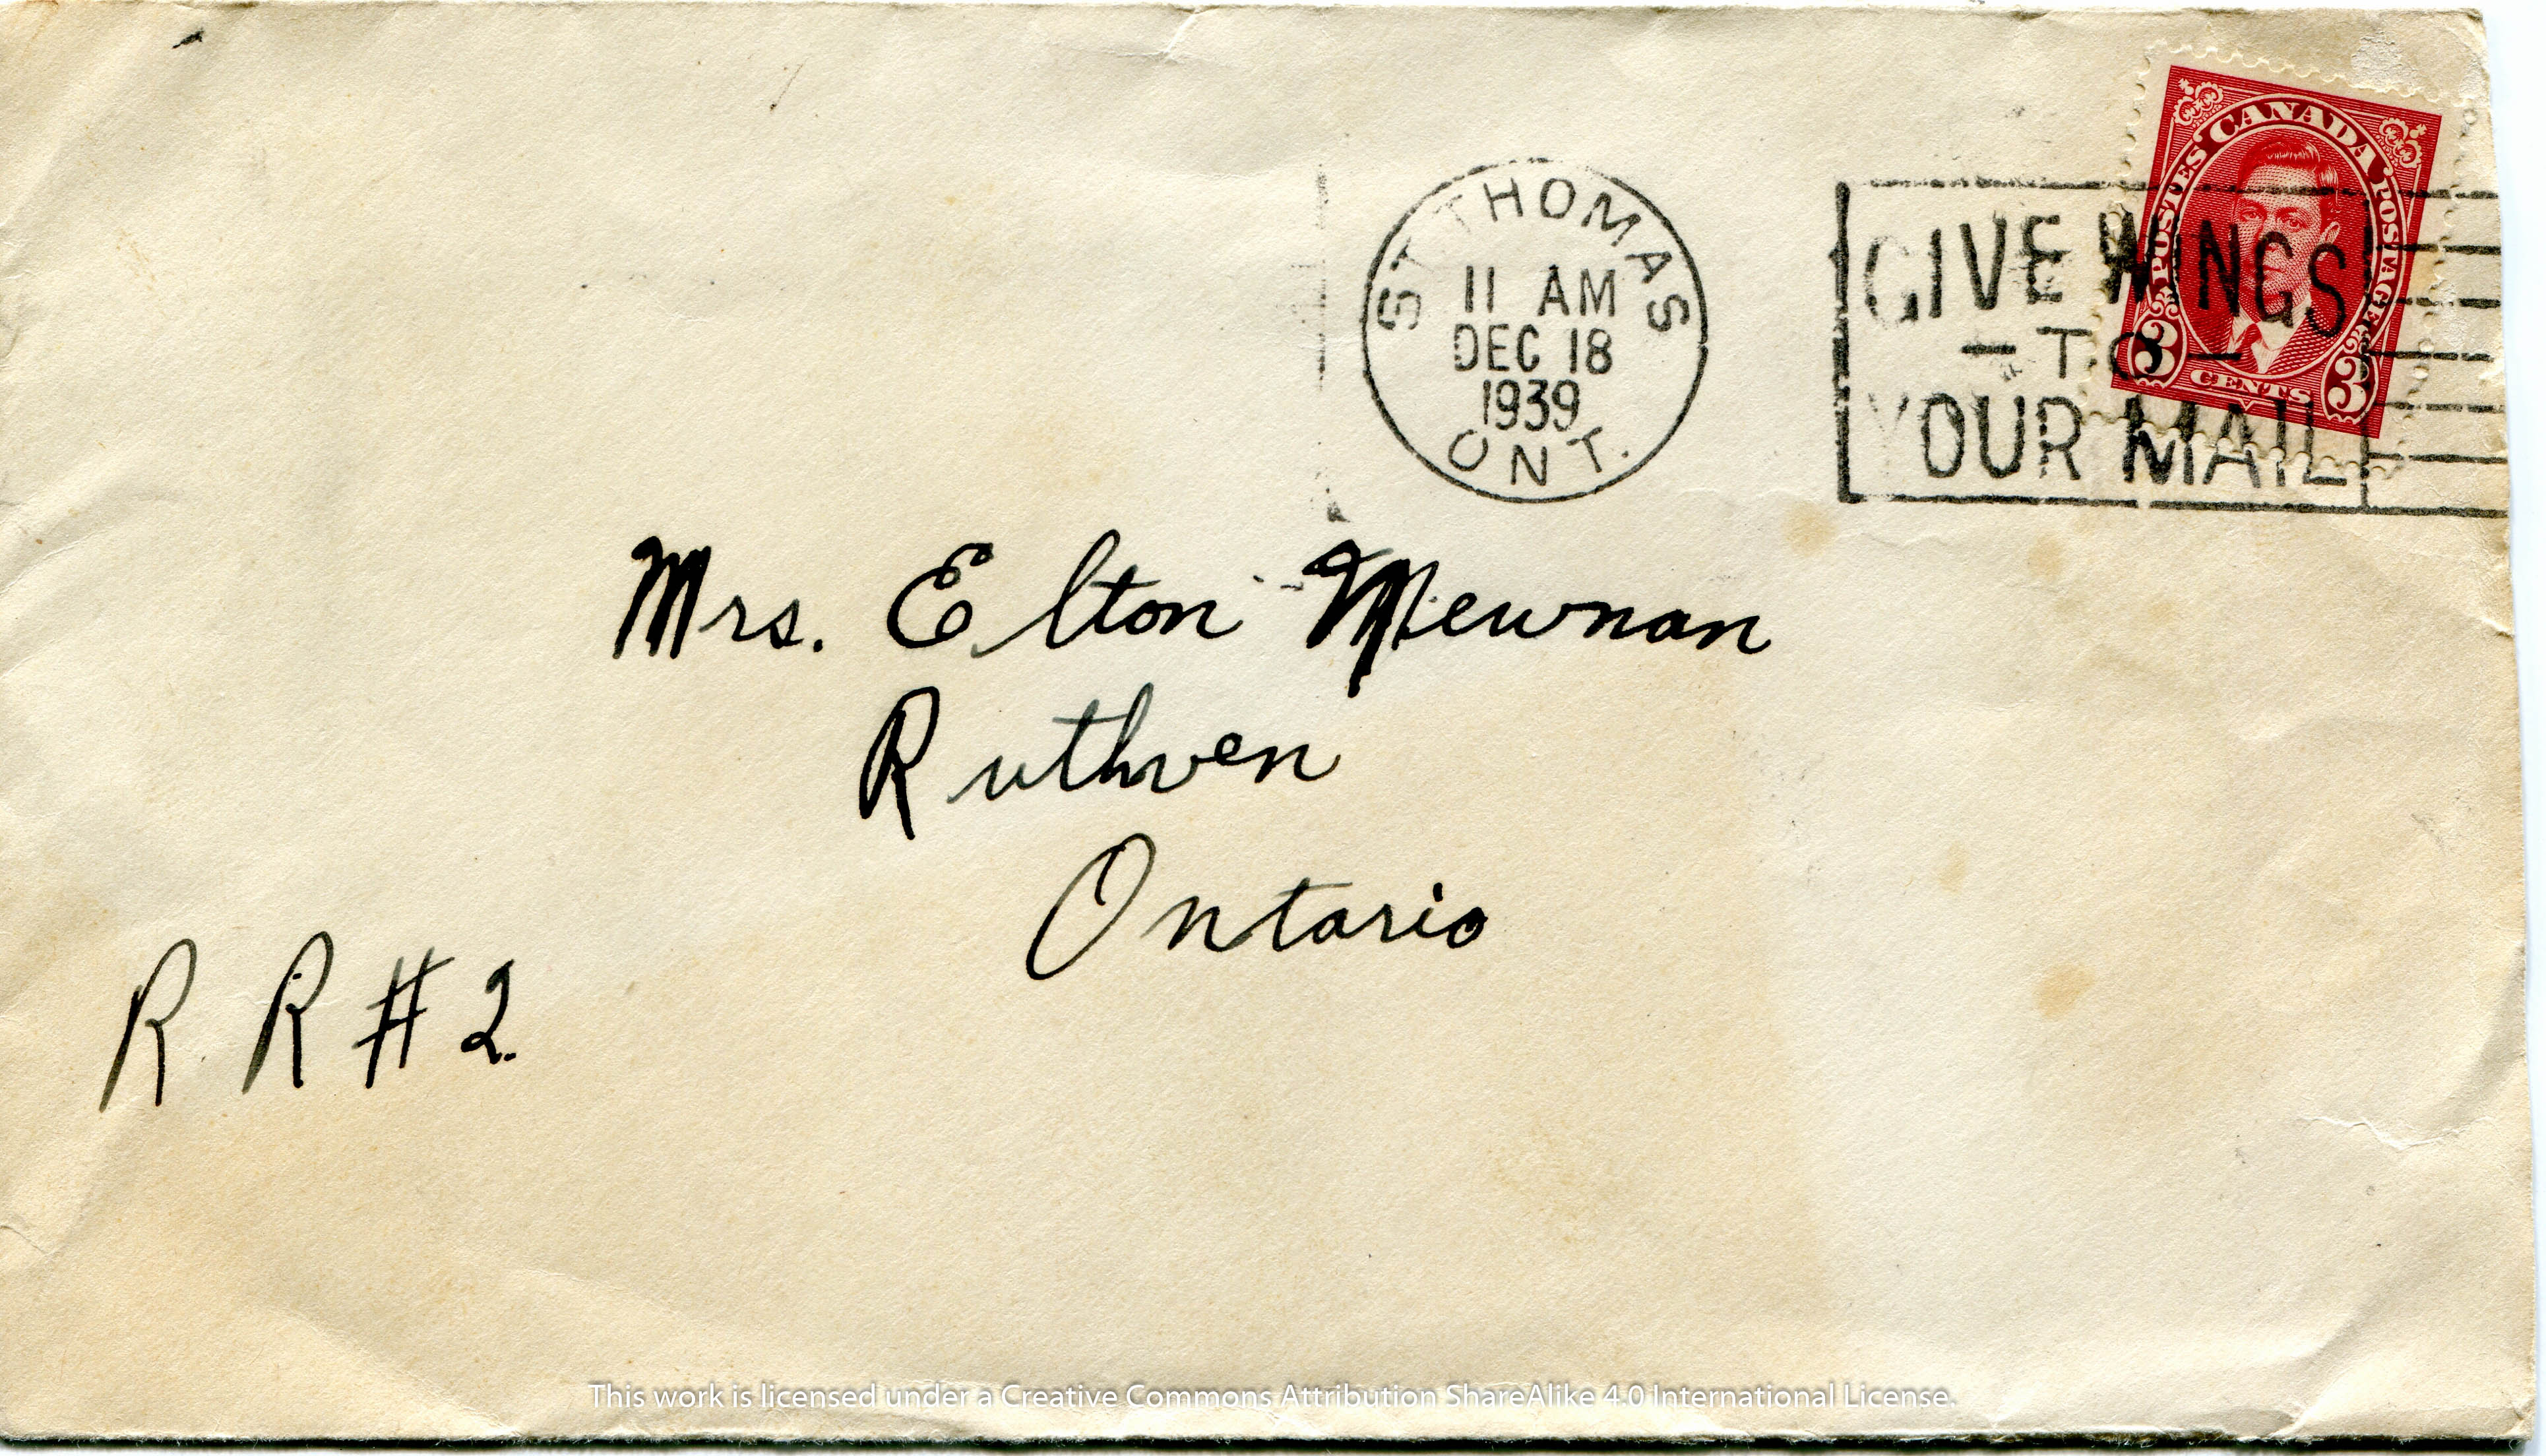 CANADA
POSTES POSTAGE
3 CENTS 3
ST THOMAS
11 AM
DEC 18
1939
ONT.
GIVE WINGS
- TO -
YOUR MAIL
Mrs. Elton Mewnan
Ruthven
Ontario
R. R # 2.
This work is licensed under a Creative Commons Attribution ShareAlike 4.0 International License.